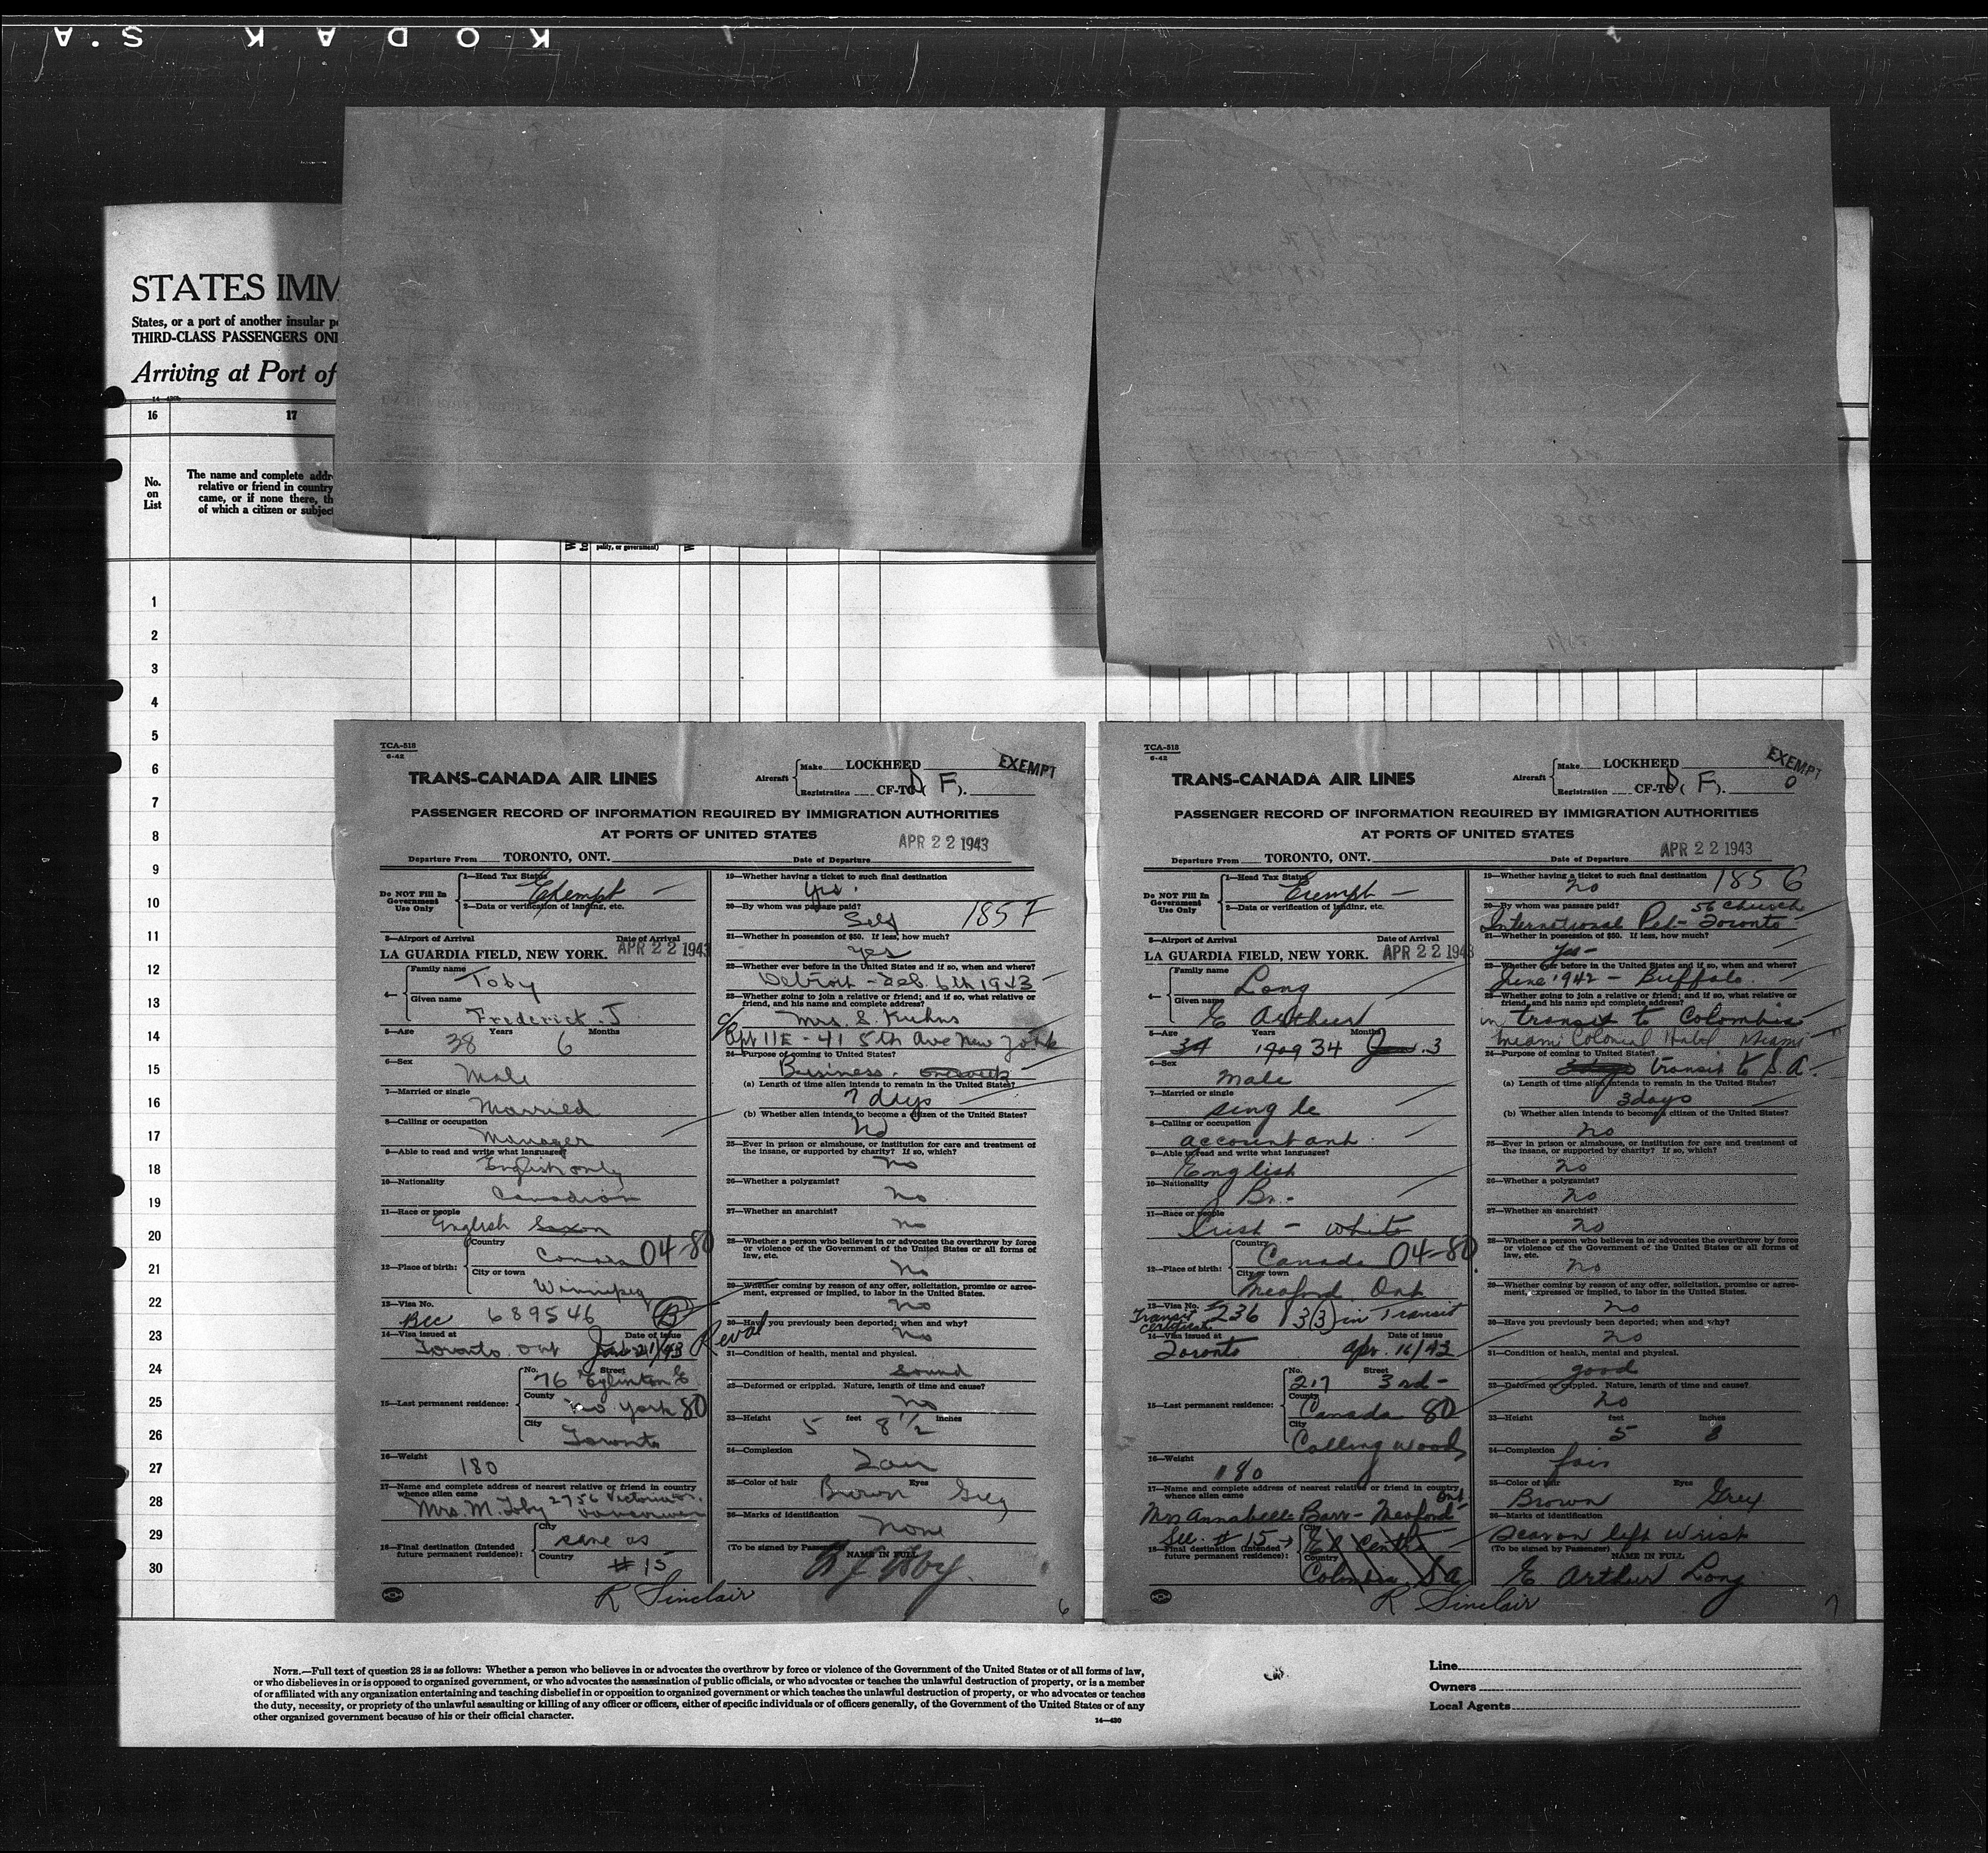 KODAK S.A
STATES IMM
States, or a port of another insular p
THIRD-CLASS PASSENGERS ONL
Arriving at Port of
16 17
No. on List
The name and complete addr
relative or friend in country
came, or if none there, th
of which a citizen or subject
pality, or government)
1
2
3
4
5
6
7
8
9
10
11
12
13
14
15
16
17
18
19
20
21
22
23
24
25
26
27
28
29
30
TCA-518
6-42
TRANS-CANADA AIR LINES
Aircraft Make LOCKHEED
Registration CF-TC( F).
EXEMPT
PASSENGER RECORD OF INFORMATION REQUIRED BY IMMIGRATION AUTHORITIES
AT PORTS OF UNITED STATES
Departure From TORONTO, ONT. Date of Departure APR 22 1943
Do NOT Fill In Government Use Only
1—Head Tax Status Exempt
2—Data or verification of landing, etc.
3—Airport of Arrival Date of Arrival
LA GUARDIA FIELD, NEW YORK. APR 22 1943
4— Family name Toby
Given name Frederick. J
5—Age 38 Years 6 Months
6—Sex Male
7—Married or single Married
8—Calling or occupation Manager
9—Able to read and write what languages? English only
10—Nationality Canadian
11—Race or people English Saxon
12—Place of birth: Country Canada 04-80
City or town Winnipeg
13—Visa No. Bcc 689546 B
14—Visa issued at Toronto. Ont Date of issue Jan 21/43 Reval
15—Last permanent residence: No. 76 Street Eglinton E
County York 80
City Toronto
16—Weight 180
17—Name and complete address of nearest relative or friend in country whence alien came
Mrs. M. Toby 2756 Victoria Vancouver
18—Final destination (Intended future permanent residence): City same as
Country # 15
R Sinclair
19—Whether having a ticket to such final destination
Yes.
20—By whom was passage paid?
Self 185 F
21—Whether in possession of $50. If less, how much?
Yes
22—Whether ever before in the United States and if so, when and where?
Detroit - Feb. 6th 1943
23—Whether going to join a relative or friend; and if so, what relative or friend, and his name and complete address?
c/o Mrs. S. Kuhns
Apt 11E - 41 5th Ave New York
24—Purpose of coming to United States?
Business.
(a) Length of time alien intends to remain in the United States?
7 days
(b) Whether alien intends to become a citizen of the United States?
No
25—Ever in prison or almshouse, or institution for care and treatment of the insane, or supported by charity? If so, which?
no
26—Whether a polygamist?
no
27—Whether an anarchist?
no
28—Whether a person who believes in or advocates the overthrow by force or violence of the Government of the United States or all forms of law, etc.
no
29—Whether coming by reason of any offer, solicitation, promise or agreement, expressed or implied, to labor in the United States.
no
30—Have you previously been deported; when and why?
no
31—Condition of health, mental and physical.
sound
32—Deformed or crippled. Nature, length of time and cause?
no
33—Height 5 feet 8 1/2 inches
34—Complexion
35—Color of hair Brown Eyes Grey
36—Marks of identification
none
(To be signed by Passenger) NAME IN FULL
6
TCA-518
6-42
TRANS-CANADA AIR LINES
Aircraft Make LOCKHEED
Registration CF-TC( F).
EXEMPT
0
PASSENGER RECORD OF INFORMATION REQUIRED BY IMMIGRATION AUTHORITIES
AT PORTS OF UNITED STATES
Departure From TORONTO, ONT. Date of Departure APR 22 1943
Do NOT Fill In Government Use Only
1—Head Tax Status Exempt
2—Data or verification of landing, etc.
3—Airport of Arrival Date of Arrival
LA GUARDIA FIELD, NEW YORK. APR 22 1943
4— Family name Long
Given name E Arthur
5—Age 34 Years 1909 34 Months Jan. 3
6—Sex male
7—Married or single single
8—Calling or occupation accountant
9—Able to read and write what languages? English
10—Nationality Br.
11—Race or people Irish - white
12—Place of birth: Country Canada 04-80
City or town Meaford. Ont
13—Visa No. Transit certificate 236 3(3) in Transit
14—Visa issued at Toronto Date of issue Apr. 16/43
15—Last permanent residence: No. 217 Street 3rd -
County Canada 80
City Collingwood
16—Weight 180
17—Name and complete address of nearest relative or friend in country whence alien came
Mrs Annabelle Barr - Meaford Ont
See # 15
18—Final destination (Intended future permanent residence): City El Centro
Country Colombia S A
R Sinclair
19—Whether having a ticket to such final destination
no 185 G
20—By whom was passage paid? 56 Church
International Pet - Toronto
21—Whether in possession of $50. If less, how much?
Yes -
22—Whether ever before in the United States and if so, when and where?
June 1942 - Buffalo.
23—Whether going to join a relative or friend; and if so, what relative or friend, and his name and complete address?
in transit to Colombia
Miami Colonial Hotel Miami
24—Purpose of coming to United States?
3 days transit to S.A.
(a) Length of time alien intends to remain in the United States?
3 days
(b) Whether alien intends to become a citizen of the United States?
no
25—Ever in prison or almshouse, or institution for care and treatment of the insane, or supported by charity? If so, which?
no
26—Whether a polygamist?
no
27—Whether an anarchist?
no
28—Whether a person who believes in or advocates the overthrow by force or violence of the Government of the United States or all forms of law, etc.
no
29—Whether coming by reason of any offer, solicitation, promise or agreement, expressed or implied, to labor in the United States.
no
30—Have you previously been deported; when and why?
no
31—Condition of health, mental and physical.
good
32—Deformed or crippled. Nature, length of time and cause?
no
33—Height feet 5 inches 8
34—Complexion
fair
35—Color of hair Brown Eyes Grey
36—Marks of identification
Scar on left wrist
(To be signed by Passenger) NAME IN FULL
E. Arthur Long
7
NOTE.—Full text of question 28 is as follows: Whether a person who believes in or advocates the overthrow by force or violence of the Government of the United States or of all forms of law,
or who disbelieves in or is opposed to organized government, or who advocates the assassination of public officials, or who advocates or teaches the unlawful destruction of property, or is a member
of or affiliated with any organization entertaining and teaching disbelief in or opposition to organized government or which teaches the unlawful destruction of property, or who advocates or teaches
the duty, necessity, or propriety of the unlawful assaulting or killing of any officer or officers, either of specific individuals or of officers generally, of the Government of the United States or of any
other organized government because of his or their official character.
14—430
Line
Owners
Local Agents